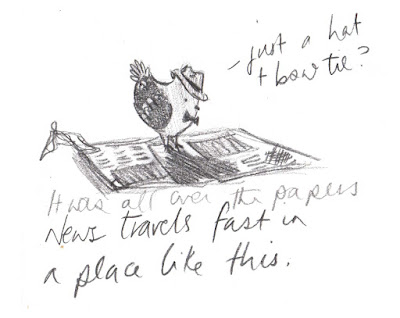 - just a hat
+ bow tie?
It was all over the papers
News travels fast in
a place like this.